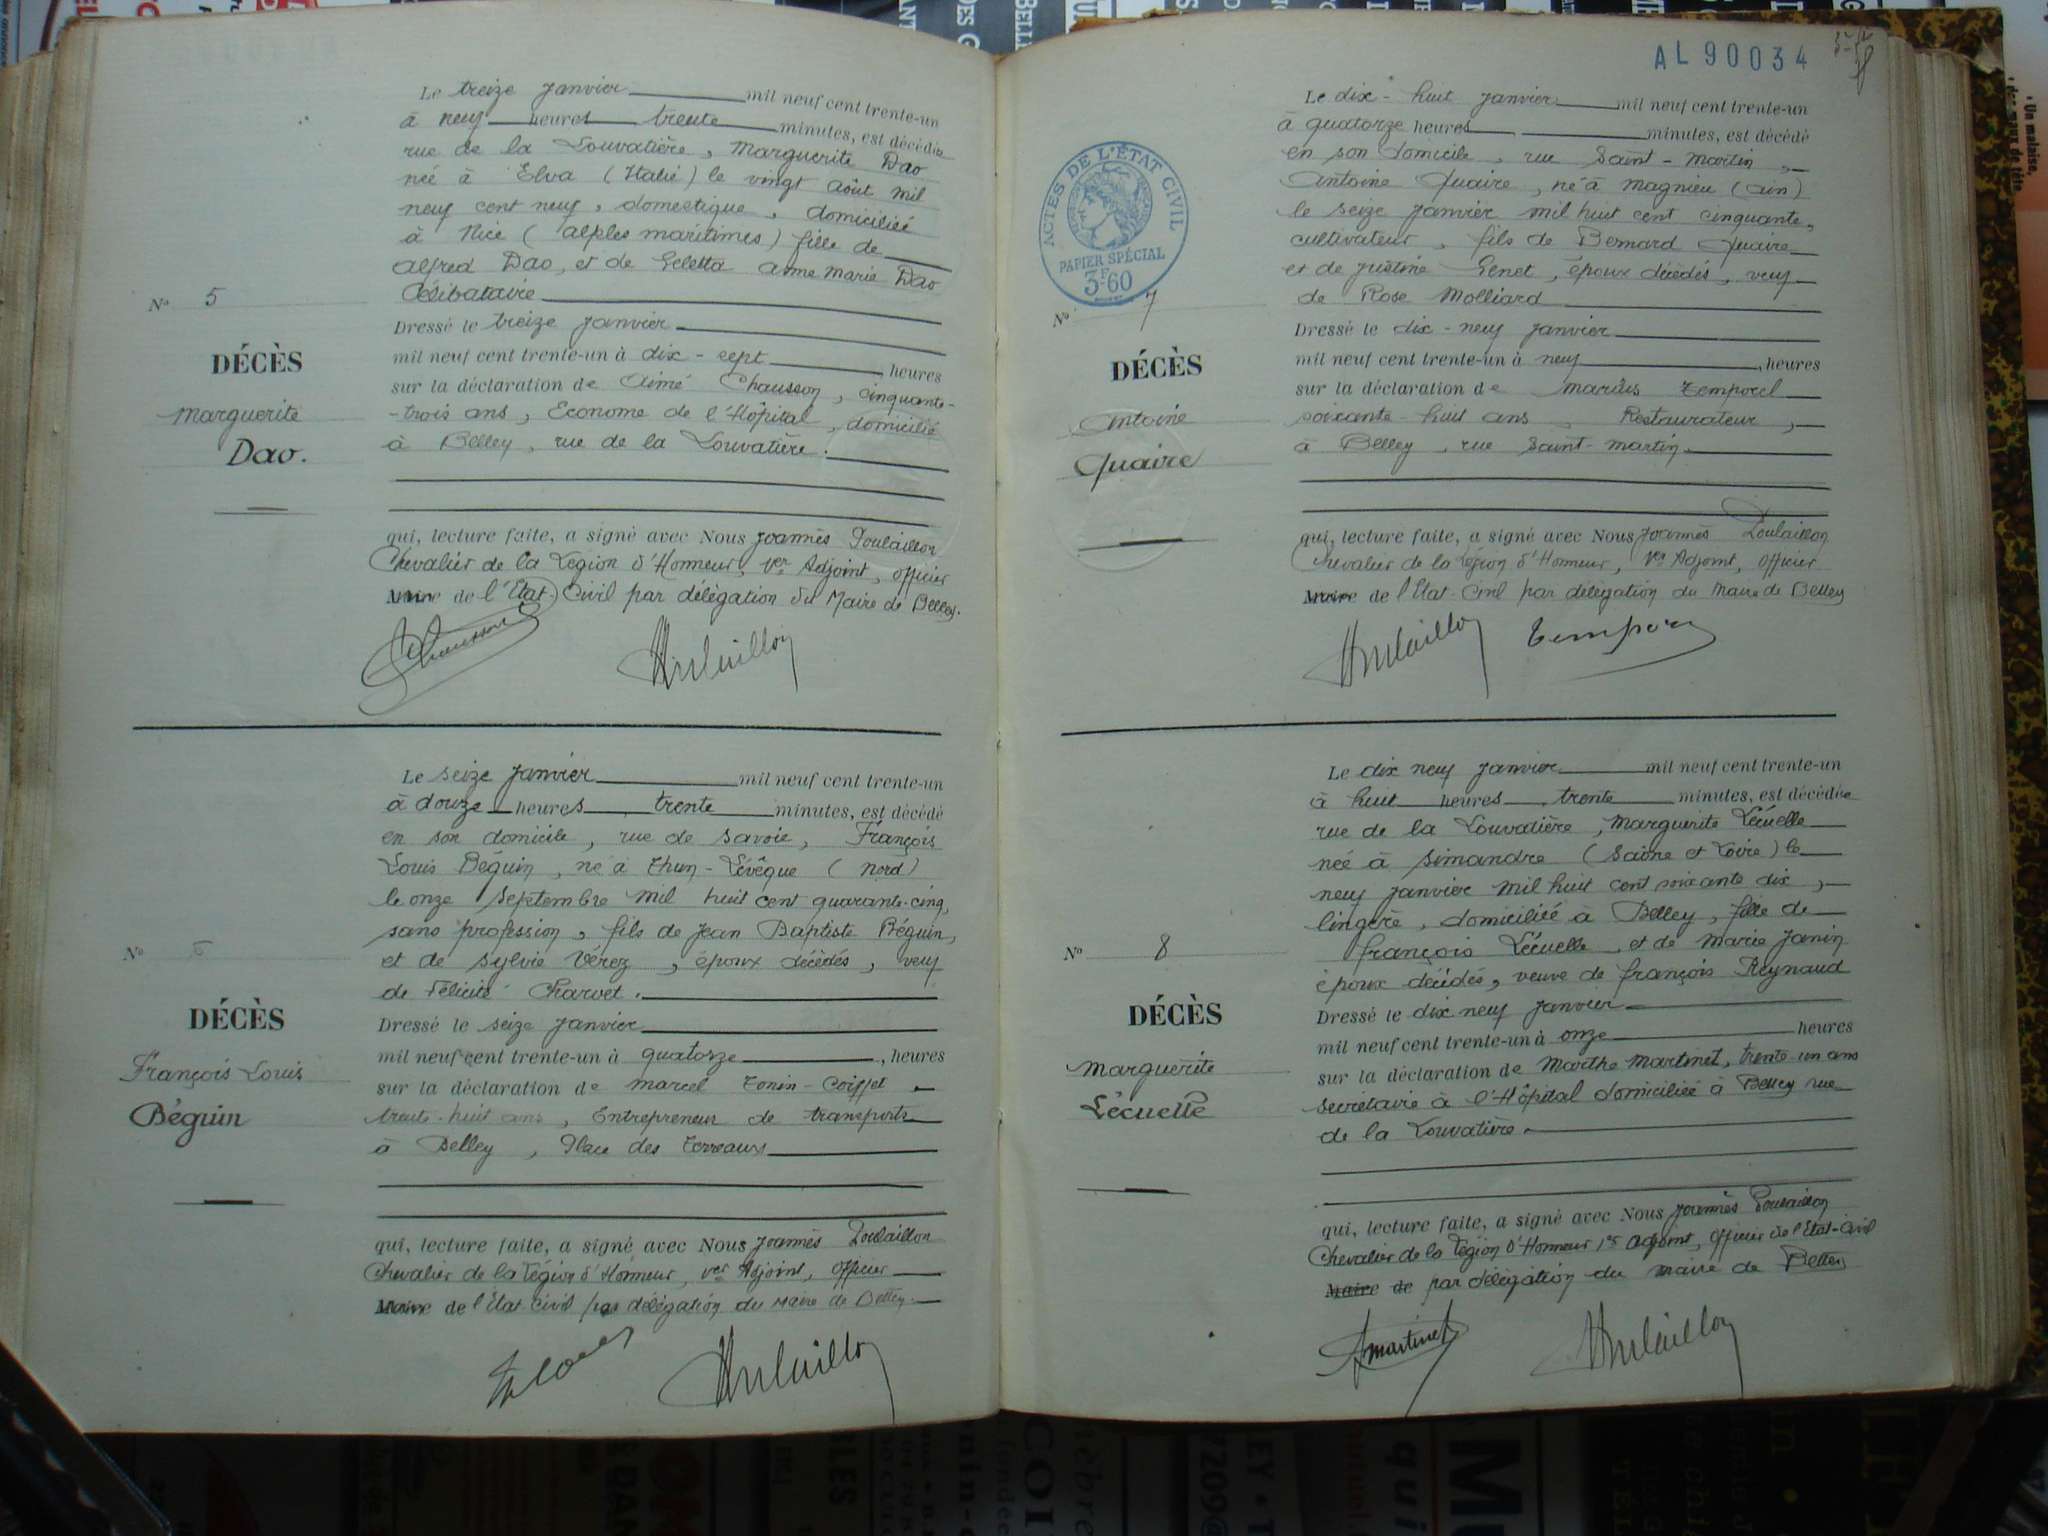 Le treize janvier mil neuf cent trente-un
à neuf heures trente minutes, est décédée
rue de la Louvatière, Marguerite Dao
née à Elva (Italie) le vingt août mil
neuf cent neuf, domestique, domiciliée
à Nice (Alples maritimes) fille de
Alfred Dao, et de Geletta Anne Marie Dao
Célibataire
N° 5
DÉCÈS
Marguerite
Dao.
Dressé le treize janvier
mil neuf cent trente-un à dix-sept heures
sur la déclaration de Aimé Chausson, cinquante-
-trois ans, Econome de l'Hôpital, domicilié
à Belley, rue de la Louvatière.
qui, lecture faite, a signé avec Nous Joannès Poulaillon
Chevalier de la Légion d'Honneur, 1er Adjoint, officier
Maire de l'Etat-Civil par délégation du Maire de Belley.
Chausson
Poulaillon
Le seize janvier mil neuf cent trente-un
à douze heures trente minutes, est décédé
en son domicile, rue de Savoie, François
Louis Béguin, né à Thun-Lévêque (Nord)
le onze septembre mil huit cent quarante-cinq,
sans profession, fils de Jean Baptiste Béguin,
et de Sylvie Vérez, époux décédés, veuf
de Félicité Charvet.
N° 6
DÉCÈS
François Louis
Béguin
Dressé le seize janvier
mil neuf cent trente-un à quatorze, heures
sur la déclaration de Marcel Tonin-Coiffet
trente-huit ans, Entrepreneur de transports
à Belley, Place des Terreaux
qui, lecture faite, a signé avec Nous Joannès Poulaillon
Chevalier de la Légion d'Honneur, 1er Adjoint, officier
Maire de l'Etat-Civil par délégation du Maire de Belley.
Poulaillon
AL 90034
Le dix-huit janvier mil neuf cent trente-un
à quatorze heures minutes, est décédé
en son domicile, rue Saint-Martin,
Antoine Quaire, né à Magnieu (Ain)
le seize janvier mil huit cent cinquante,
cultivateur, fils de Bernard Quaire
et de Justine Genet, époux décédés, veuf
de Rose Molliard
ACTES DE L'ÉTAT CIVIL
PAPIER SPÉCIAL
3F60
N° 7
DÉCÈS
Antoine
Quaire
Dressé le dix-neuf janvier
mil neuf cent trente-un à neuf, heures
sur la déclaration de Marius Temporel
soixante-huit ans, Restaurateur,
à Belley, rue Saint-Martin.
qui, lecture faite, a signé avec Nous Joannès Poulaillon
Chevalier de la Légion d'Honneur, 1er Adjoint, officier
Maire de l'Etat-Civil par délégation du Maire de Belley
Poulaillon
Temporel
Le dix neuf janvier mil neuf cent trente-un
à huit heures, trente minutes, est décédée
rue de la Louvatière, Marguerite Lécuelle
née à Simandre (Saône et Loire) le
neuf janvier mil huit cent soixante dix,
lingère, domiciliée à Belley, fille de
François Lécuelle, et de Marie Janin
époux décédés, veuve de François Reynaud
N° 8
DÉCÈS
Marguerite
Lécuelle
Dressé le dix neuf janvier
mil neuf cent trente-un à onze heures
sur la déclaration de Marthe Martinet, trente-un ans
secrétaire à l'Hôpital domiciliée à Belley rue
de la Louvatière.
qui, lecture faite, a signé avec Nous Joannès Poulaillon
Chevalier de la Légion d'Honneur 1er Adjoint, officier de l'Etat-Civil
Maire de par délégation du Maire de Belley
Martinet
Poulaillon